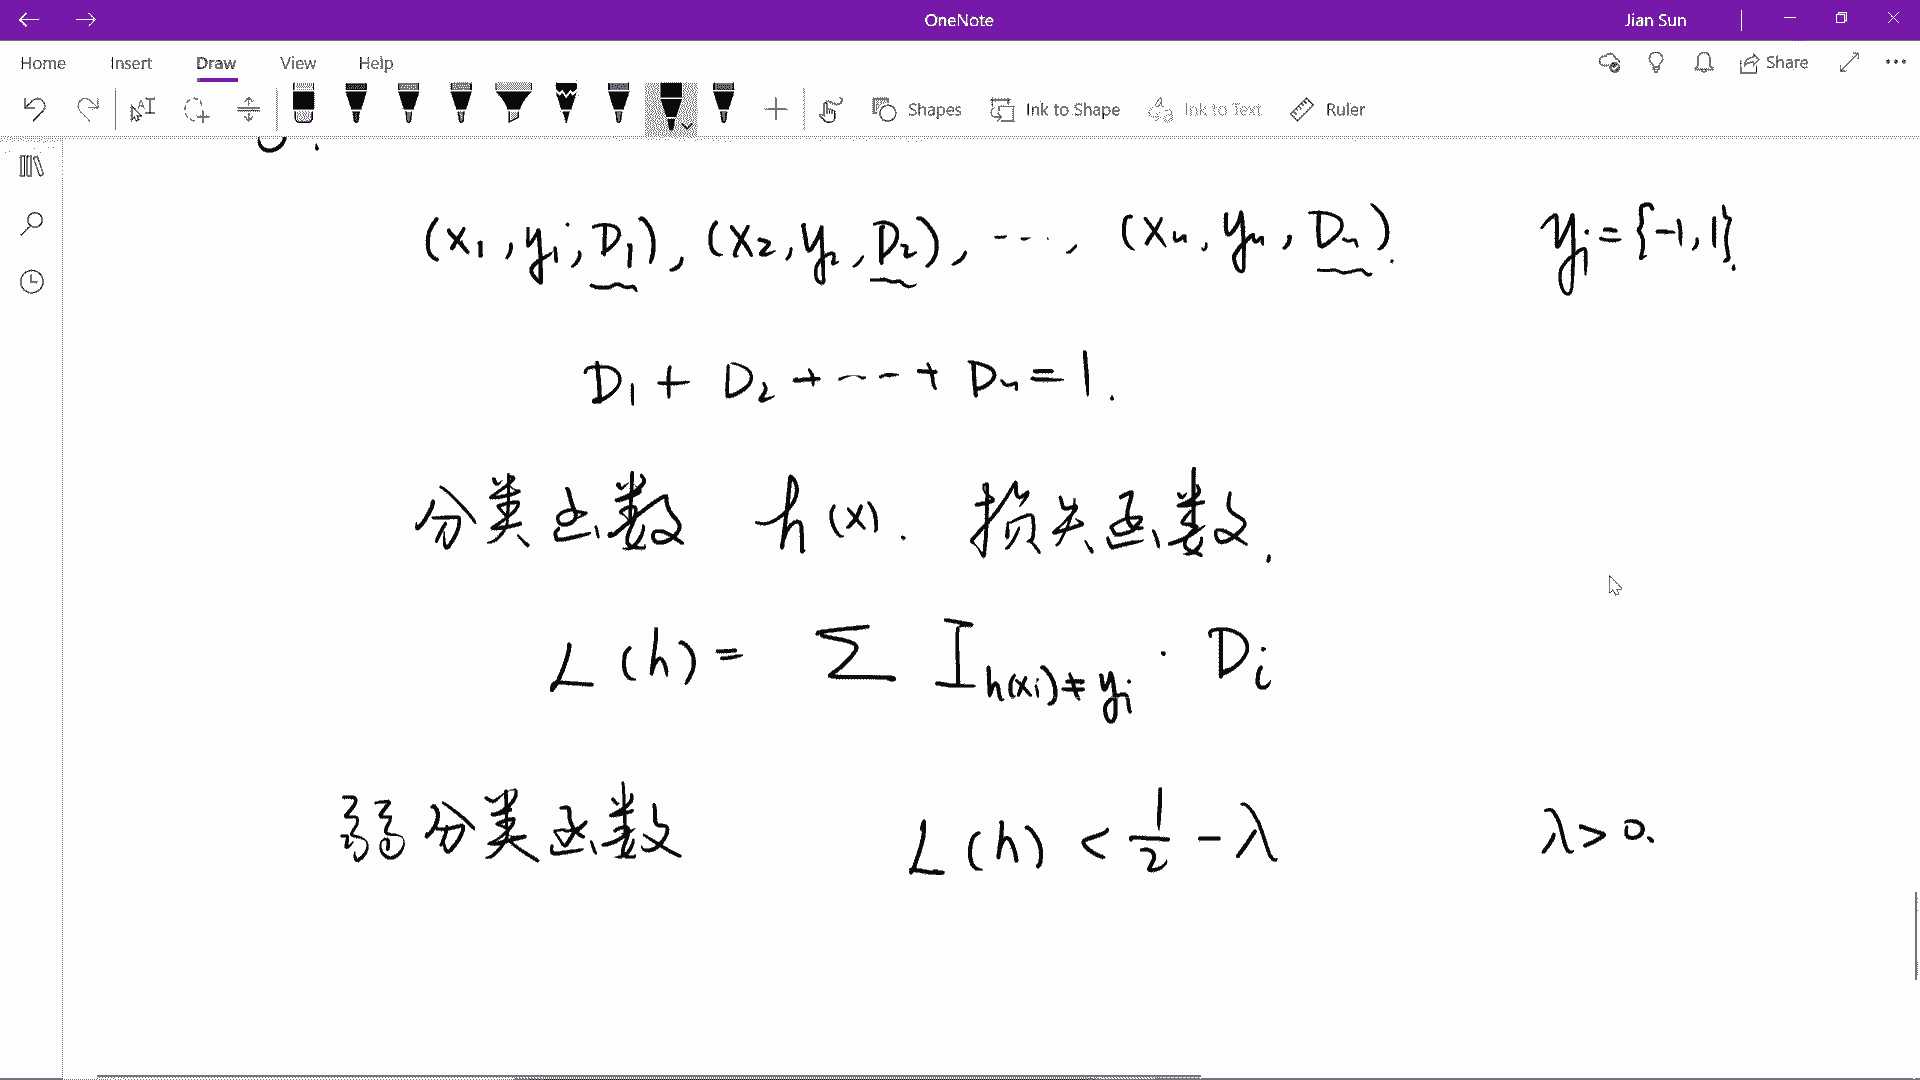 OneNote Jian Sun
Home Insert Draw View Help Share
Shapes Ink to Shape Ink to Text Ruler
(x₁, y₁, D₁), (x₂, y₂, D₂), ..., (xₙ, yₙ, Dₙ). yᵢ = {-1, 1}.
D₁ + D₂ + ... + Dₙ = 1.
分类函数 h(x). 损失函数.
L(h) = Σ I_{h(xᵢ)≠yᵢ} · Dᵢ
弱分类函数 L(h) < 1/2 - λ λ > 0.